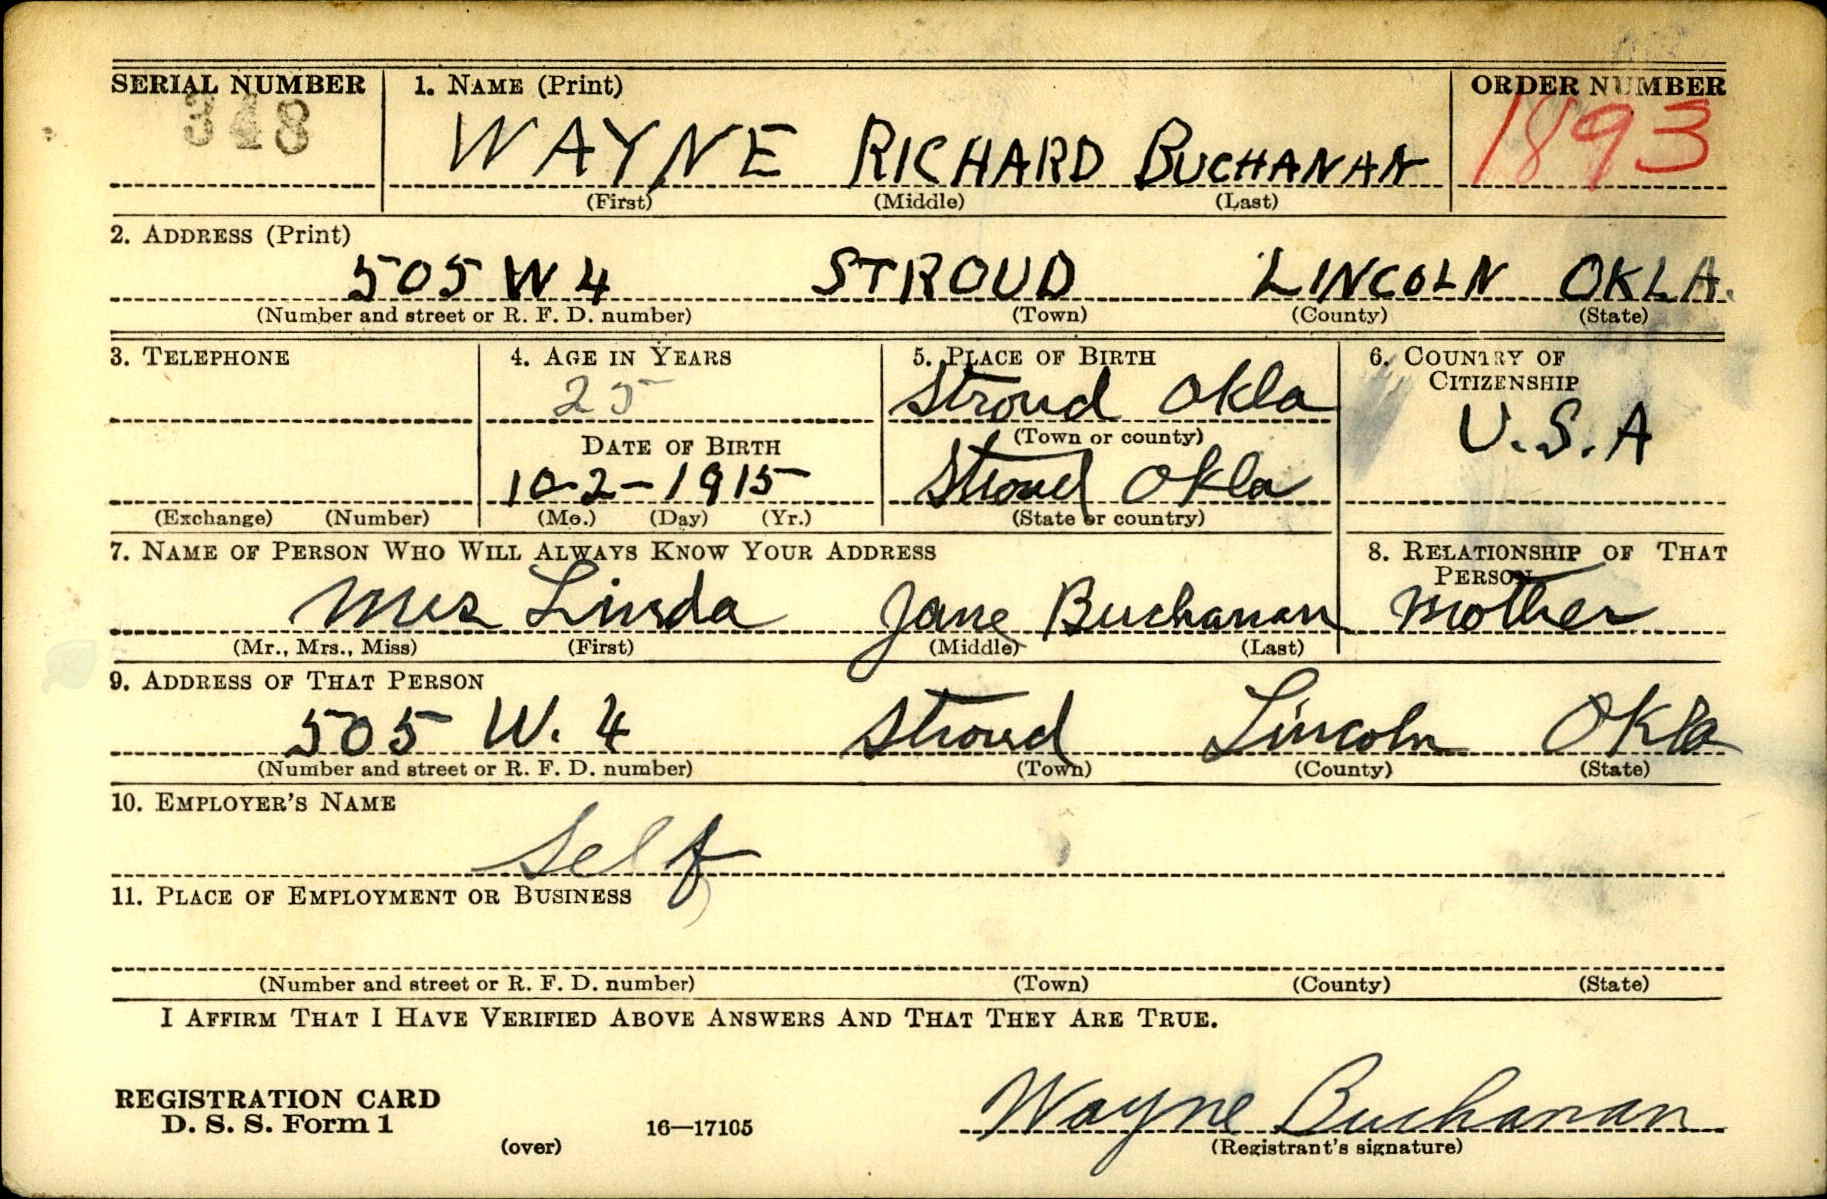 SERIAL NUMBER 1. NAME (Print) ORDER NUMBER
348 WAYNE RICHARD BUCHANAN 1893
(First) (Middle) (Last)
2. ADDRESS (Print)
505 W 4 STROUD LINCOLN OKLA.
(Number and street or R. F. D. number) (Town) (County) (State)
3. TELEPHONE 4. AGE IN YEARS 5. PLACE OF BIRTH 6. COUNTRY OF CITIZENSHIP
25 Stroud Okla U.S.A
(Town or county)
DATE OF BIRTH
10-2-1915 Stroud Okla
(Exchange) (Number) (Mo.) (Day) (Yr.) (State or country)
7. NAME OF PERSON WHO WILL ALWAYS KNOW YOUR ADDRESS 8. RELATIONSHIP OF THAT PERSON
Mrs Linda Jane Buchanan Mother
(Mr., Mrs., Miss) (First) (Middle) (Last)
9. ADDRESS OF THAT PERSON
505 W. 4 Stroud Lincoln Okla
(Number and street or R. F. D. number) (Town) (County) (State)
10. EMPLOYER'S NAME
Self
11. PLACE OF EMPLOYMENT OR BUSINESS
(Number and street or R. F. D. number) (Town) (County) (State)
I AFFIRM THAT I HAVE VERIFIED ABOVE ANSWERS AND THAT THEY ARE TRUE.
REGISTRATION CARD
D. S. S. Form 1 Wayne Buchanan
(over) 16—17105 (Registrant's signature)